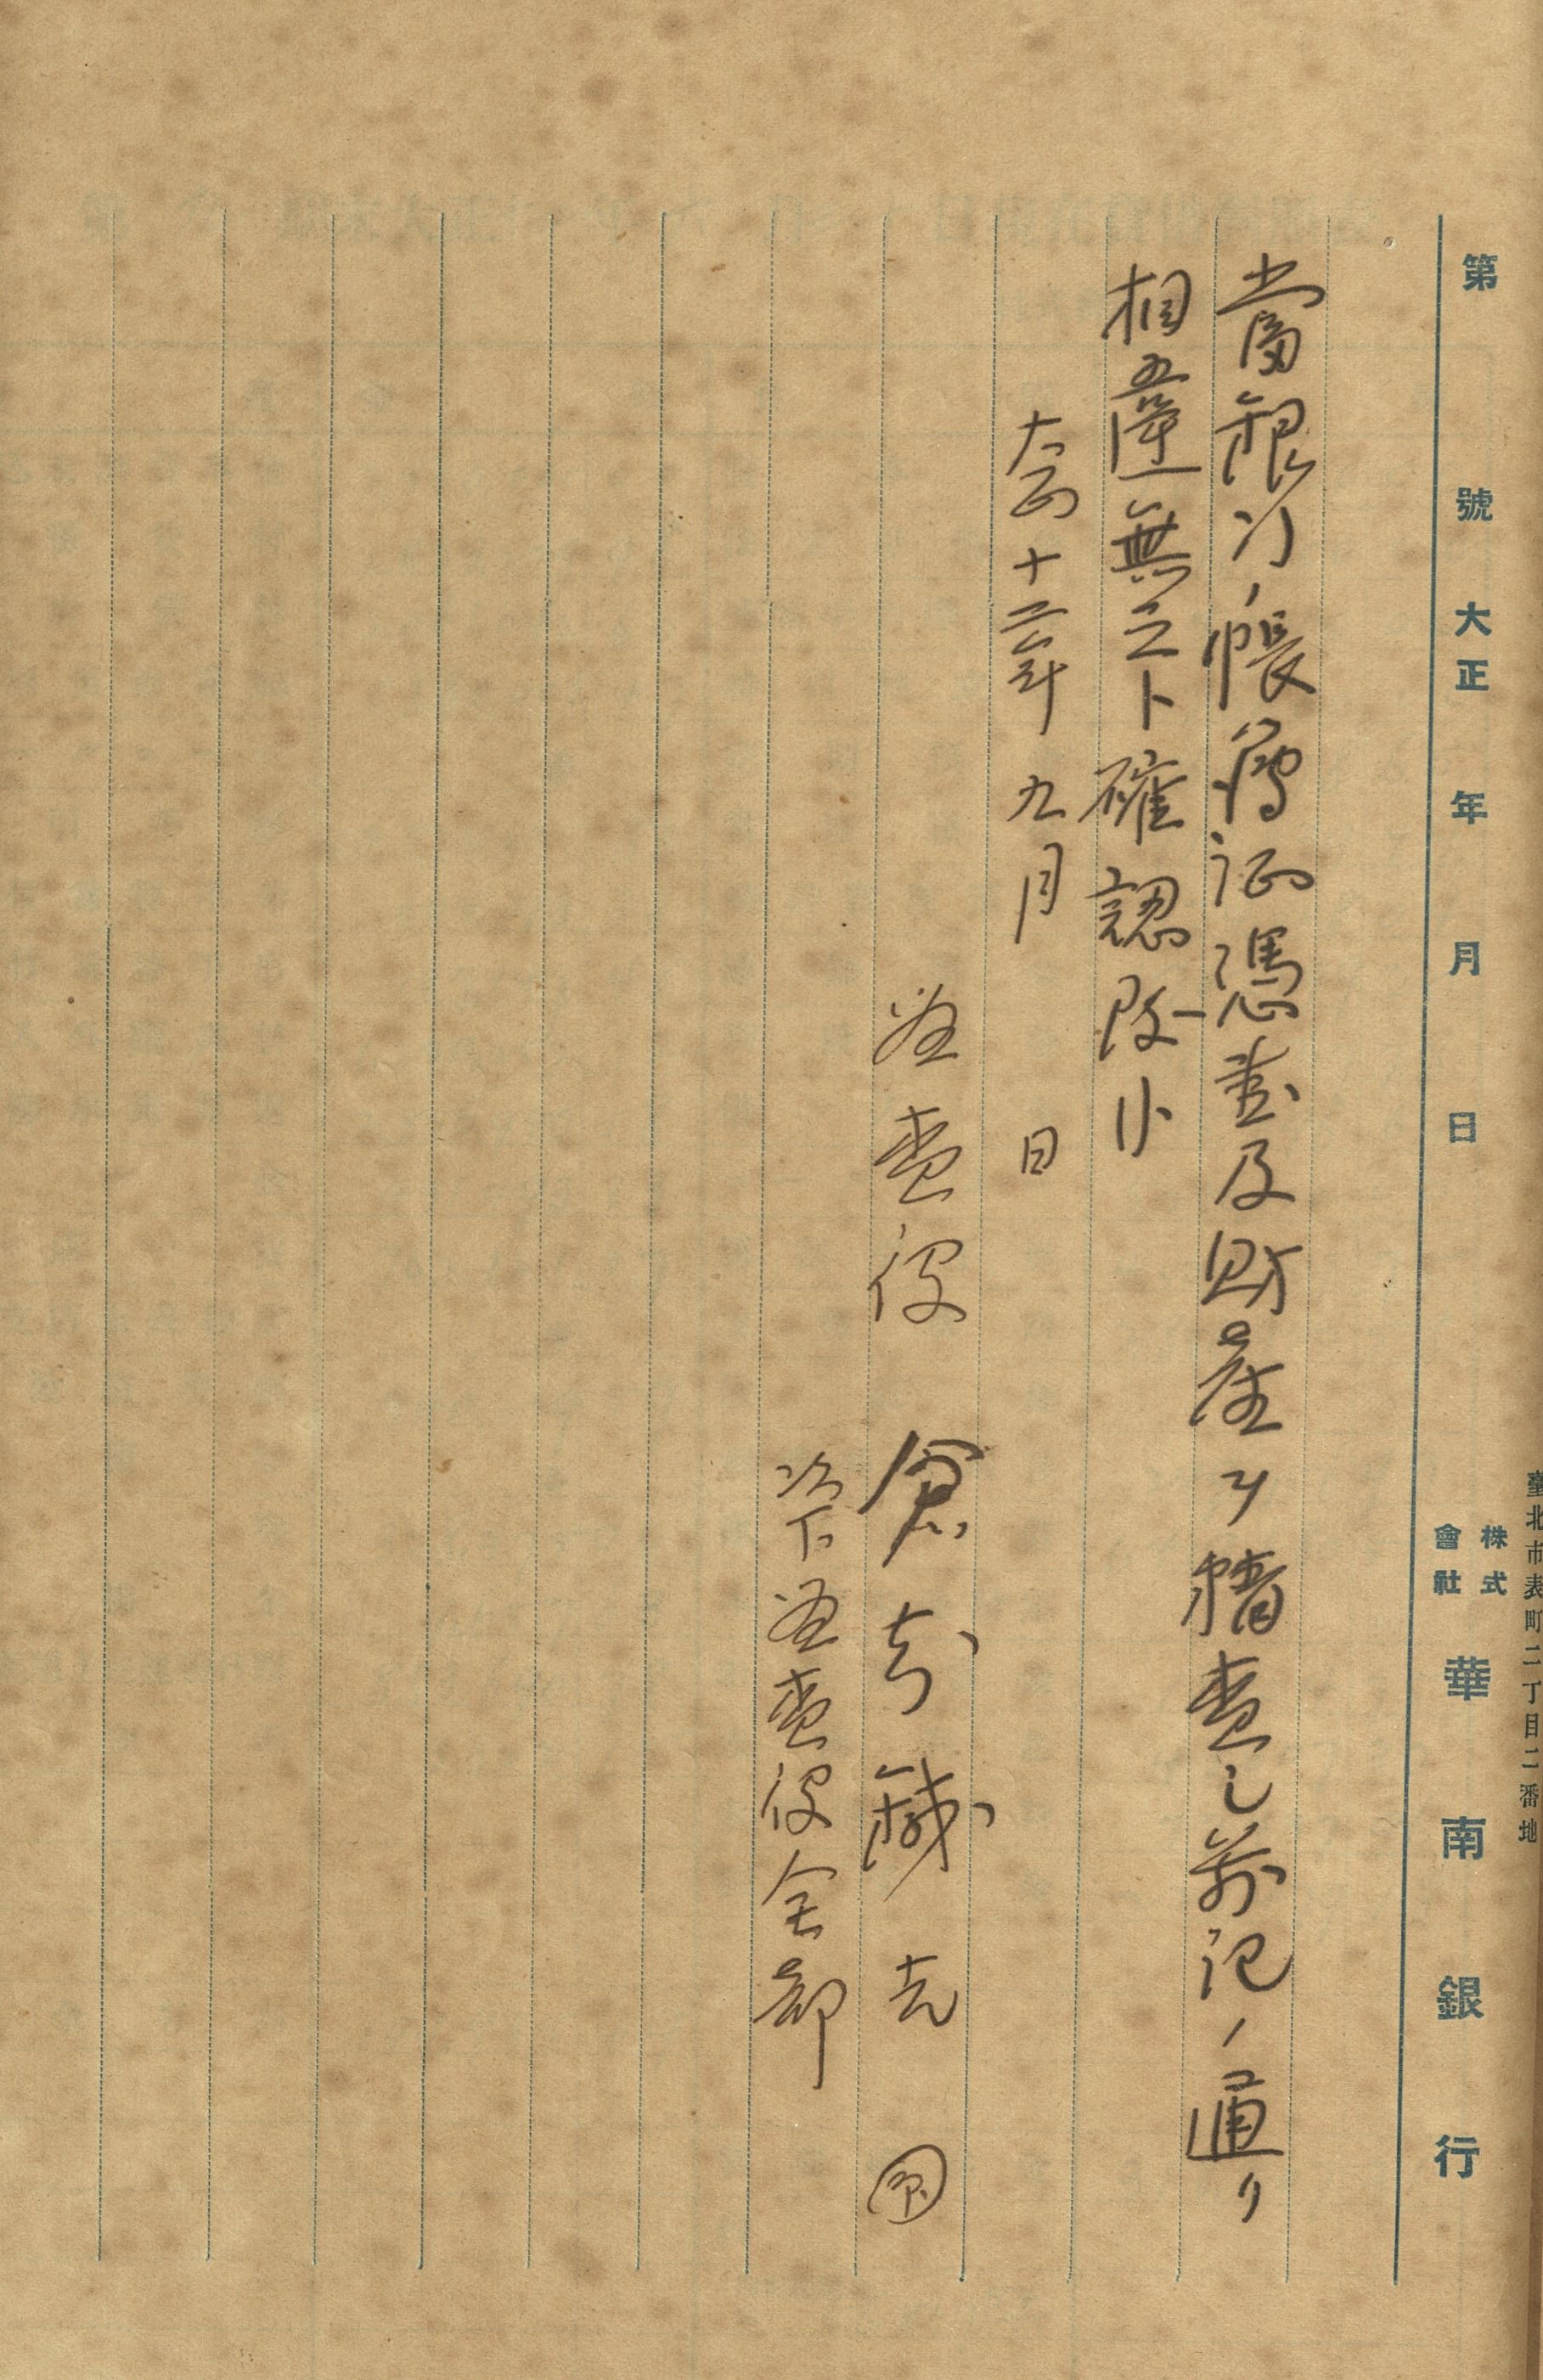 臺北市表町二丁目二番地
第 號 大正 年 月 日 株式會社 華南銀行
當銀行ノ帳簿証憑書及財産ヲ精査シ前記ノ通リ
相違無之ト確認致候
大正十二年九月 日
監査役 倉知鐵吉 印
以下監査役全部